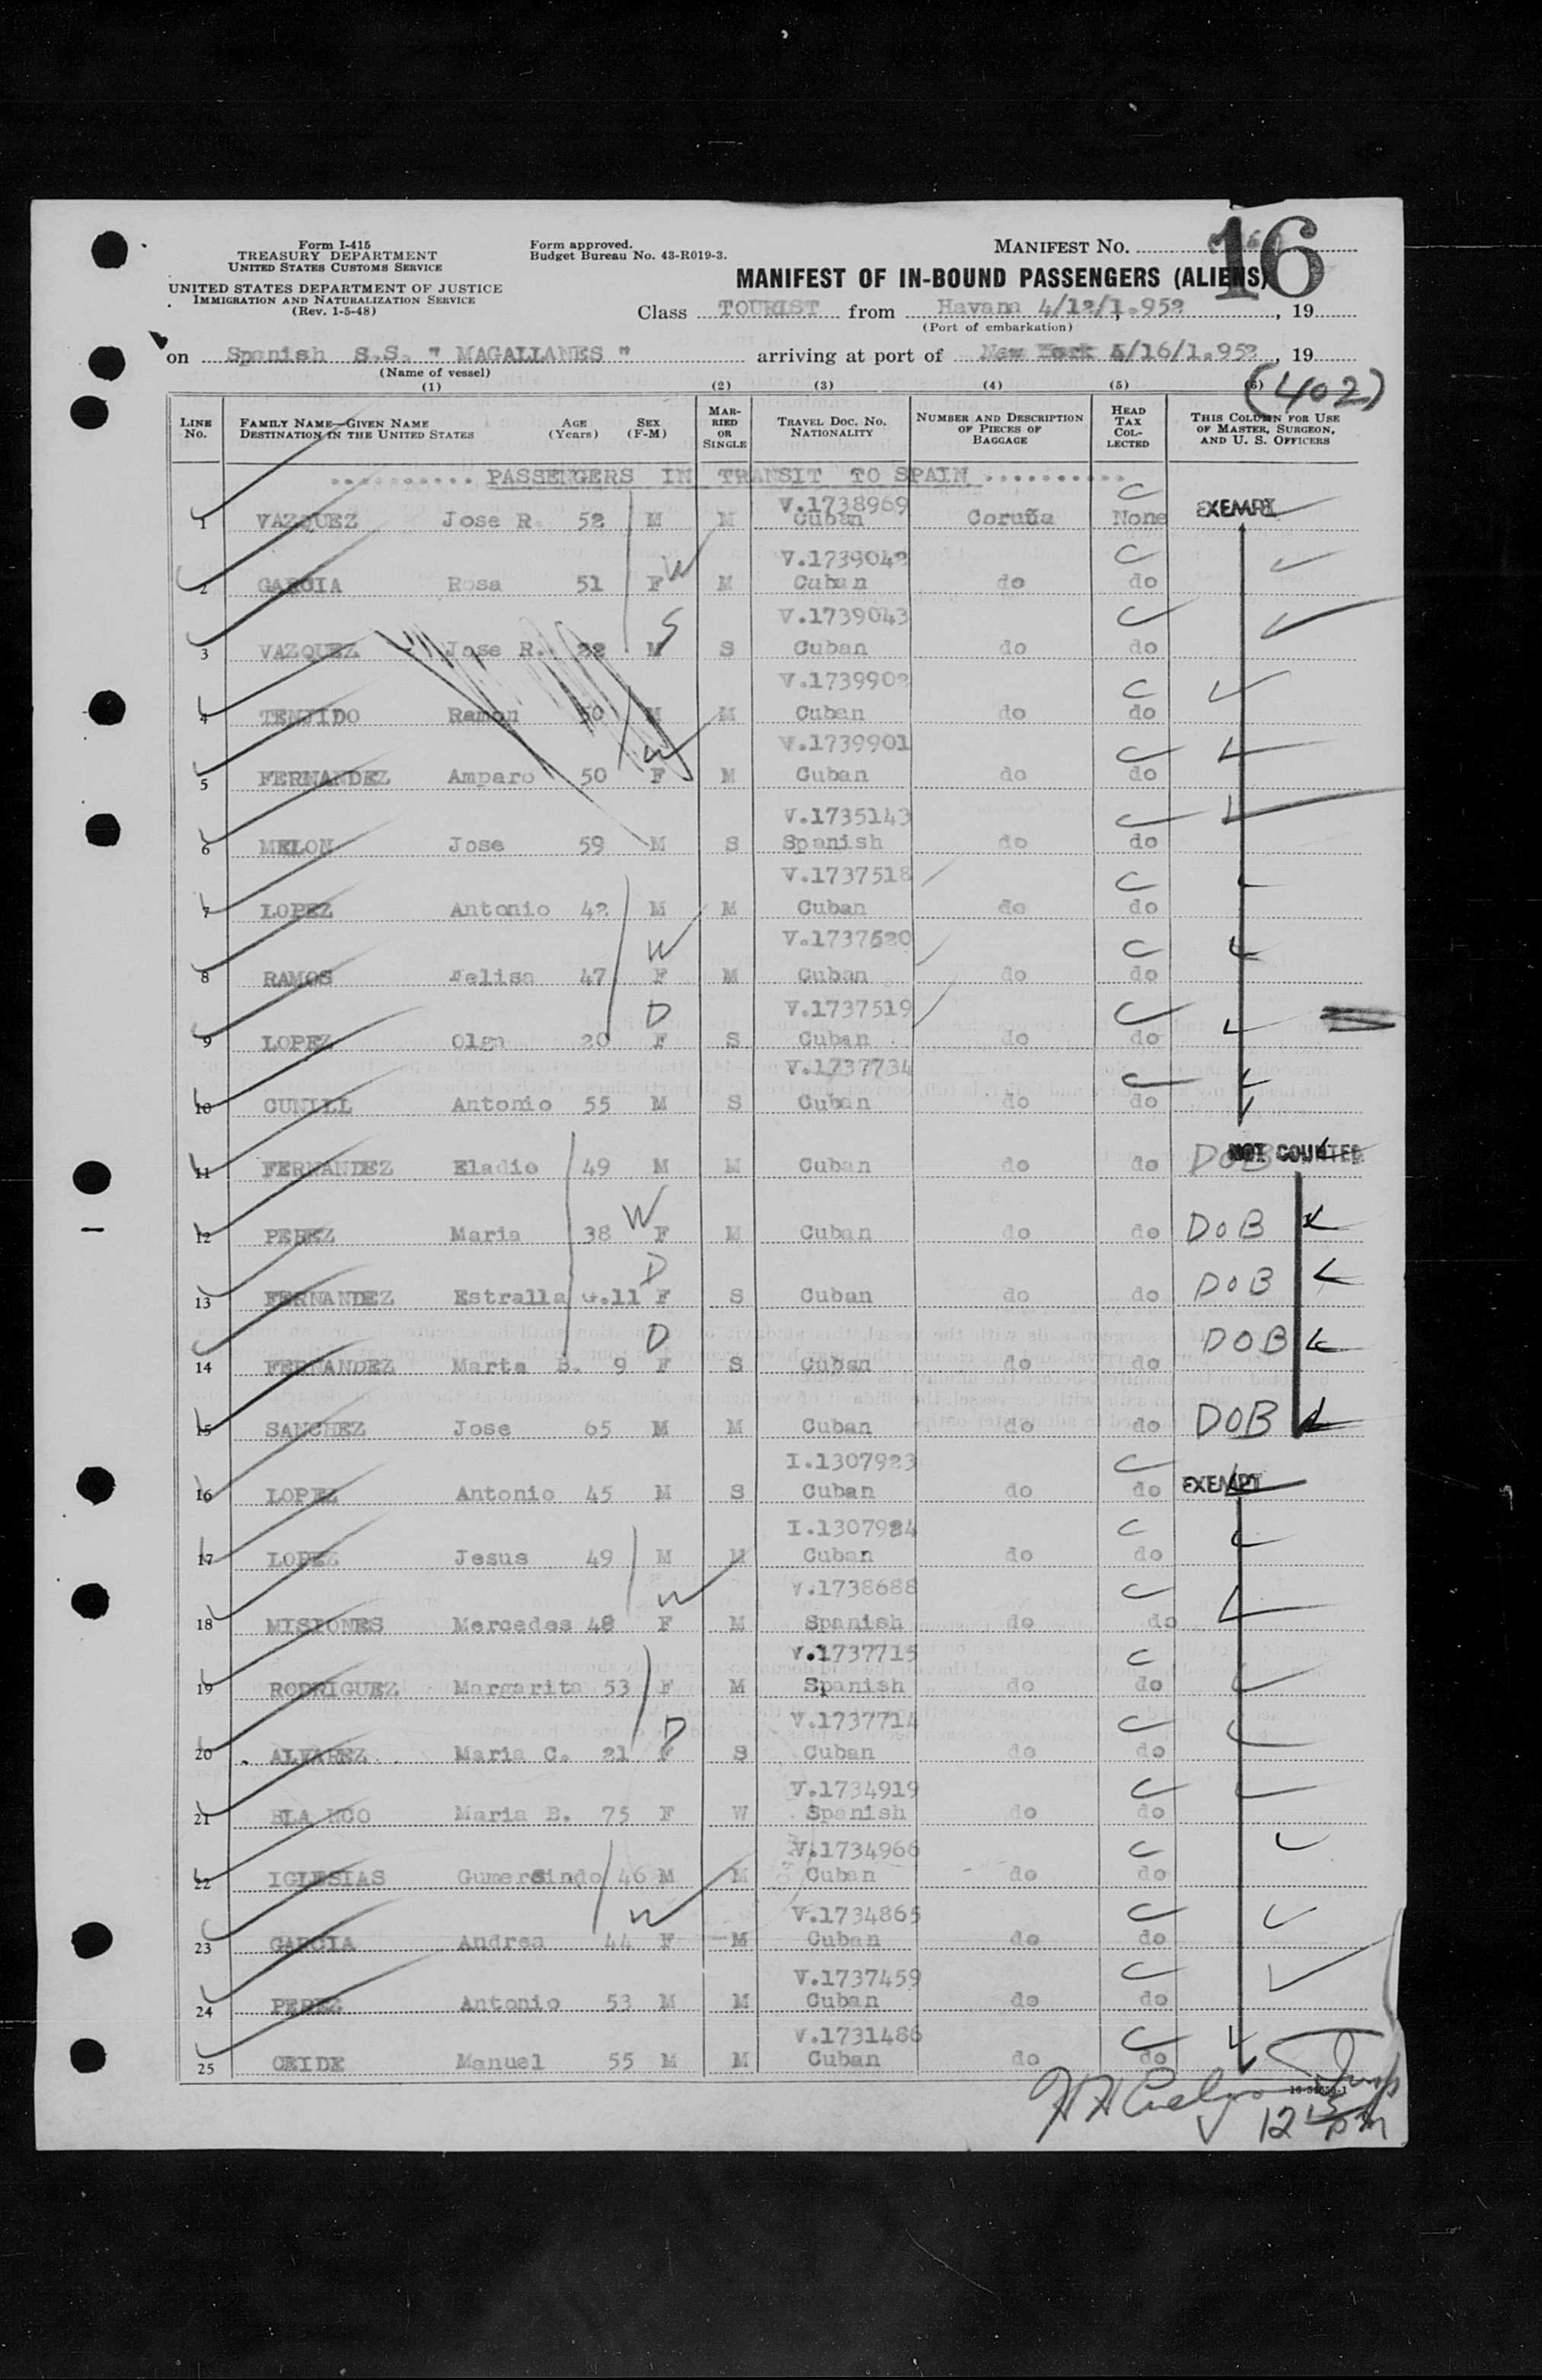 Form I-415
TREASURY DEPARTMENT
UNITED STATES CUSTOMS SERVICE
UNITED STATES DEPARTMENT OF JUSTICE
IMMIGRATION AND NATURALIZATION SERVICE
(Rev. 1-5-48)
Form approved.
Budget Bureau No. 43-R019-3.
MANIFEST NO.
16
MANIFEST OF IN-BOUND PASSENGERS (ALIENS)
Class TOURIST from Havana 4/12/1.952, 19
(Port of embarkation)
on Spanish S.S. " MAGALLANES " arriving at port of New York 4/16/1.952, 19
(Name of vessel)
(1) (2) (3) (4) (5) (6)
(402)
LINE No. FAMILY NAME—GIVEN NAME DESTINATION IN THE UNITED STATES AGE (Years) SEX (F-M) MARRIED OR SINGLE TRAVEL DOC. No. NATIONALITY NUMBER AND DESCRIPTION OF PIECES OF BAGGAGE HEAD TAX COLLECTED THIS COLUMN FOR USE OF MASTER, SURGEON, AND U. S. OFFICERS
.......... PASSENGERS IN TRANSIT TO SPAIN ..........
V.1738969 C
1 VAZQUEZ Jose R. 52 M M Cuban Coruña None EXEMPT
W V.1739042 C
2 GARCIA Rosa 51 F M Cuban do do
S V.1739043 C
3 VAZQUEZ Jose R. 22 M S Cuban do do
V.1739902 C
4 TENJIDO Ramon 50 M M Cuban do do
W V.1739901 C
5 FERNANDEZ Amparo 50 F M Cuban do do
V.1735143 C
6 MELON Jose 59 M S Spanish do do
V.1737518 C
7 LOPEZ Antonio 42 M M Cuban do do
W V.1737520 C
8 RAMOS Felisa 47 F M Cuban do do
D V.1737519 C
9 LOPEZ Olga 20 F S Cuban do do
V.1737734 C
10 CUNILL Antonio 55 M S Cuban do do
11 FERNANDEZ Eladio 49 M M Cuban do do DOB NOT COUNTED
W
12 PEREZ Maria 38 F M Cuban do do DOB
D
13 FERNANDEZ Estralla G.11 F S Cuban do do DOB
D
14 FERNANDEZ Marta B. 9 F S Cuban do do DOB
15 SANCHEZ Jose 65 M M Cuban do do DOB
I.1307923 C
16 LOPEZ Antonio 45 M S Cuban do do EXEMPT
I.1307924 C
17 LOPEZ Jesus 49 M M Cuban do do
W V.1738688 C
18 MISIONES Mercedes 48 F M Spanish do do
V.1737715 C
19 RODRIGUEZ Margarita 53 F M Spanish do do
D V.1737714 C
20 ALVAREZ Maria C. 21 F S Cuban do do
V.1734919 C
21 BLANCO Maria B. 75 F W Spanish do do
V.1734966 C
22 IGLESIAS Gumersindo 46 M M Cuban do do
W V.1734865 C
23 GARCIA Andrea 44 F M Cuban do do
V.1737459 C
24 PEREZ Antonio 53 M M Cuban do do
V.1731486 C
25 CEIDE Manuel 55 M M Cuban do do
12 15 pm